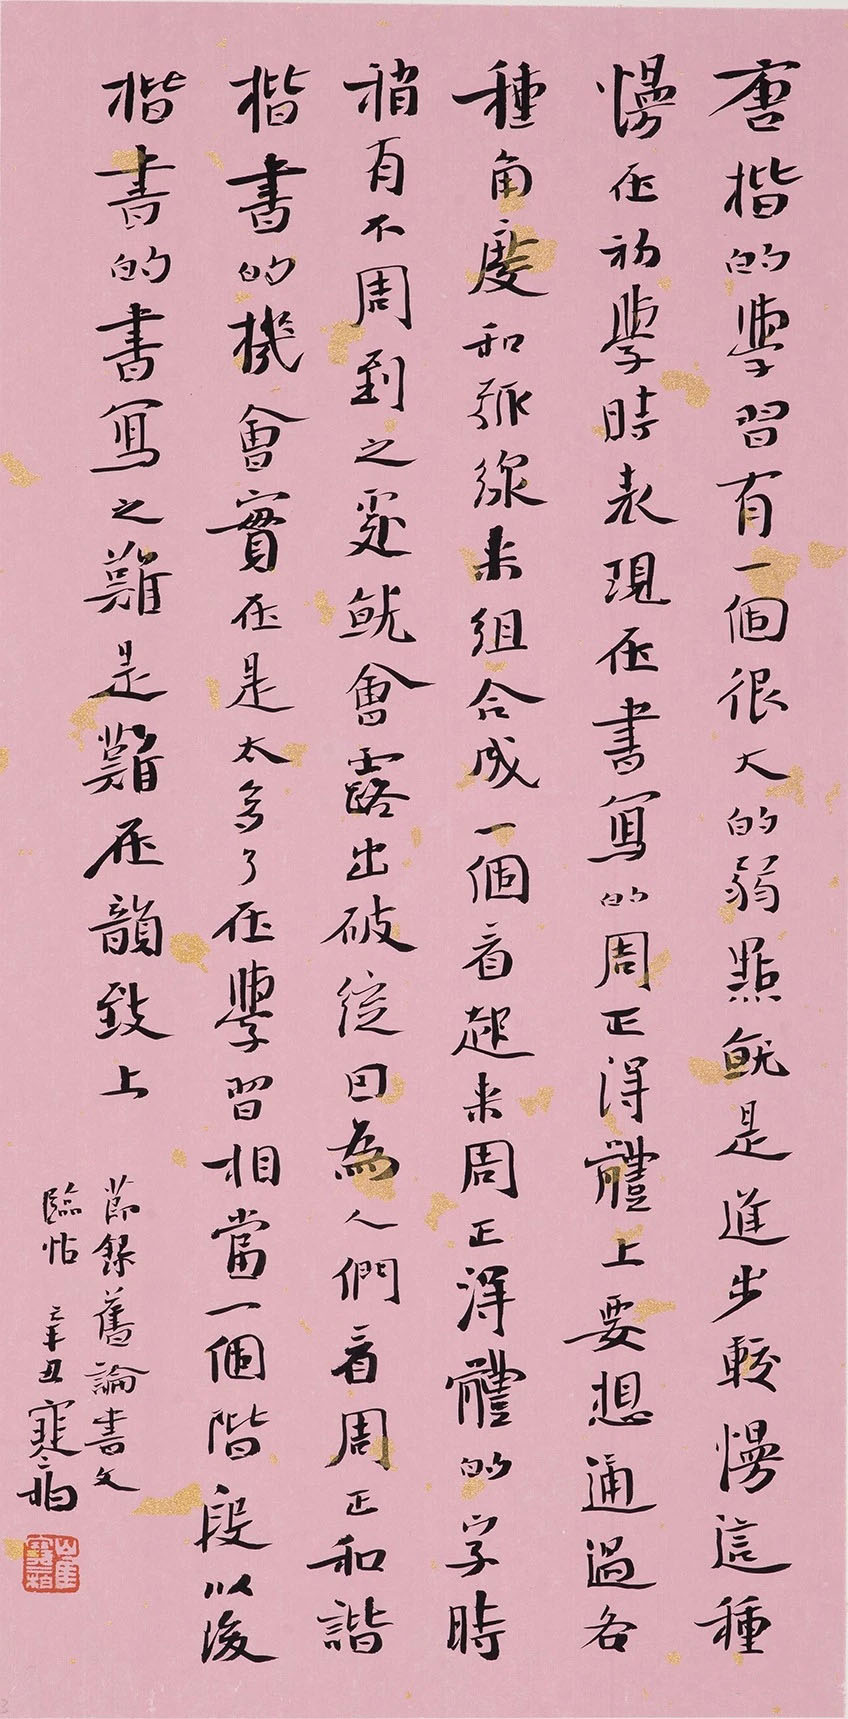 唐楷的學習有一個很大的弱點就是進步較慢這種
慢在初學時表現在書寫的周正得體上要想通過各
種角度和弧線來組合成一個看起來周正得體的字時
稍有不周到之處就會露出破綻因為人們看周正和諧
楷書的機會實在是太多了在學習相當一個階段以後
楷書的書寫之難是難在韻致上
節錄舊論書文
臨帖 辛丑 寒柏
崔寒柏